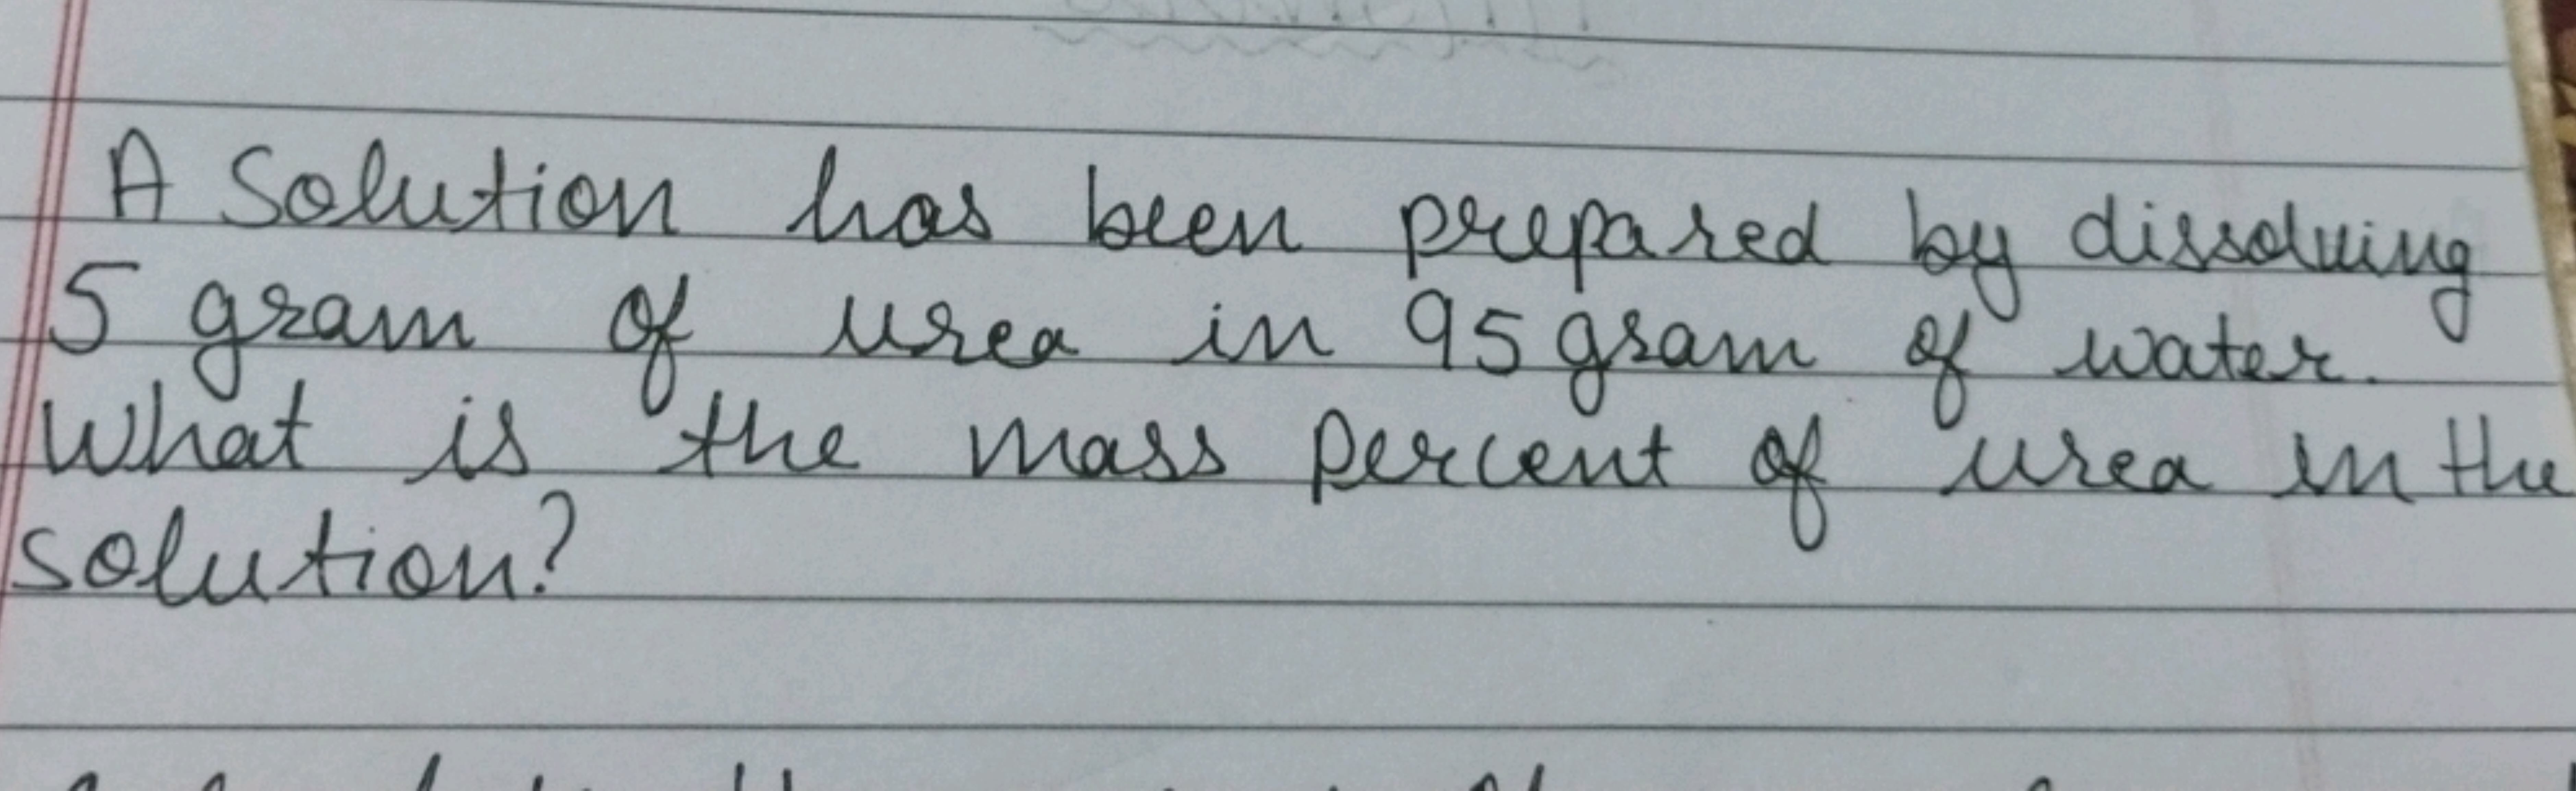 A Solution has been prepared by dissolving
5 gram of urea in 95 gram of water.
What is the mass percent of urea in the
solution?